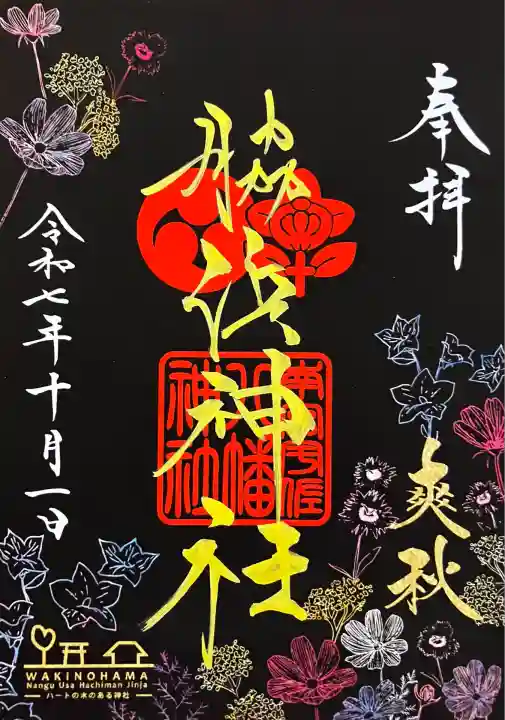 奉拝
爽秋
脇浜神社
南宮宇佐
八幡
神社
令和七年十月一日
WAKINOHAMA
Nangu Usa Hachiman Jinja
ハートの木のある神社